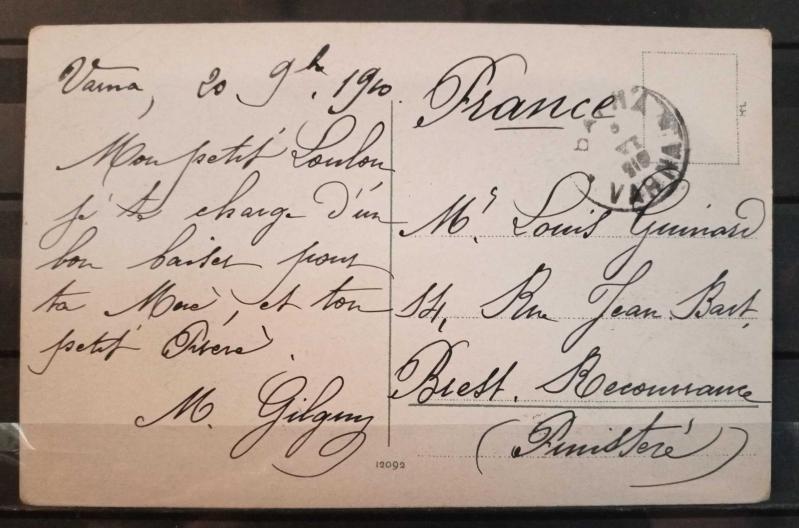 Varna, 20 9bre 1910
Mon petit Loulou
je te charge d'un
bon baiser pour
ta Mère, et ton
petit Frère
M.
12092
France
ВАРНА
VARNA
Mr Louis Guinard
14, Rue Jean Bart,
Brest. Recouvrance
(Finistère)